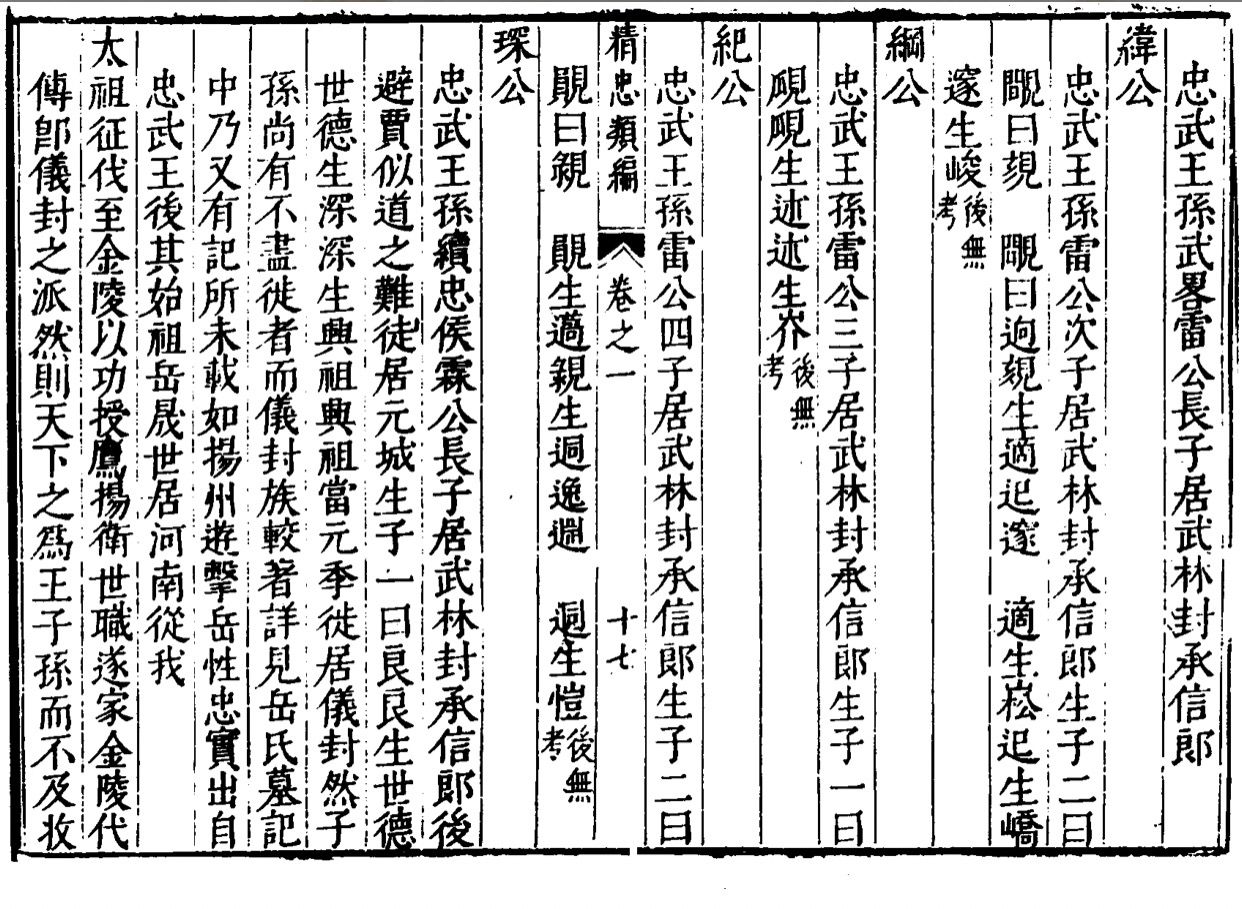 忠武王孫武畧雷公長子居武林封承信郎
緯公
忠武王孫雷公次子居武林封承信郎生子二曰
覞曰䙺　覞曰逈䙺生適迟邃　適生崧迟生嶠
邃生峻後無考
綱公
忠武王孫雷公三子居武林封承信郎生子一曰
覗覗生述述生岕後無考
紀公
忠武王孫雷公四子居武林封承信郎生子二曰
精忠類編　卷之一　十七
曰親　生邁親生迥逸逥　迥生愷後無考
琛公
忠武王孫續忠侯霖公長子居武林封承信郎後
避賈似道之難徒居元城生子一曰良良生世德
世德生深深生興祖興祖當元季徙居儀封然子
孫尚有不盡徙者而儀封族較著詳見岳氏墓記
中乃又有記所未載如揚州遊擊岳性忠實出自
忠武王後其始祖岳晟世居河南從我
太祖征伐至金陵以功授鷹揚衛世職遂家金陵代
傳卽儀封之派然則天下之爲王子孫而不及收